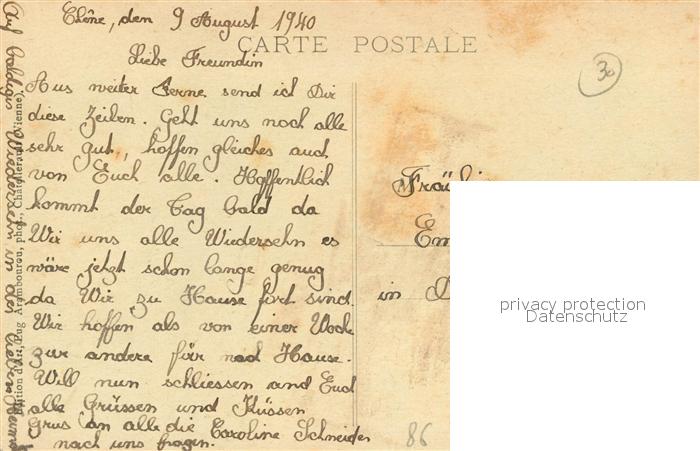 Chêne, den 9 August 1940
CARTE POSTALE
Liebe Freundin
Aus weiter Ferne send ich Dir
diese Zeilen. Geht uns noch alle
sehr gut, hoffen gleiches auch
von Euch alle. Hoffentlich
kommt der Tag bald da
Wir uns alle Wiedersehn es
wäre jetzt schon lange genug
da Wir zu Hause fort sind.
Wir hoffen als von einer Woche
zur andere für nach Hause.
Will nun schliessen and Euch
alle Grüssen und Küssen
Grus an alle die Caroline Schneider
nach uns fragen.
Auf baldiges Wiedersehn in der lieben Heimat
Edition d'Art, Eug Arambourou, phot., Châtellerault (Vienne).
30
Fräulei
Em
in D
86
privacy protection
Datenschutz